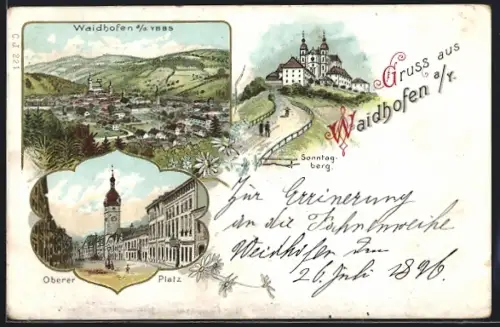 C.J. 221
Waidhofen a/d YBBS
Gruss aus
Waidhofen a/Y.
Sonntag-
berg.
Oberer Platz
Zur Errinerung
an die Fahnenweihe
Weidhofen dem
26 Juli 1896.